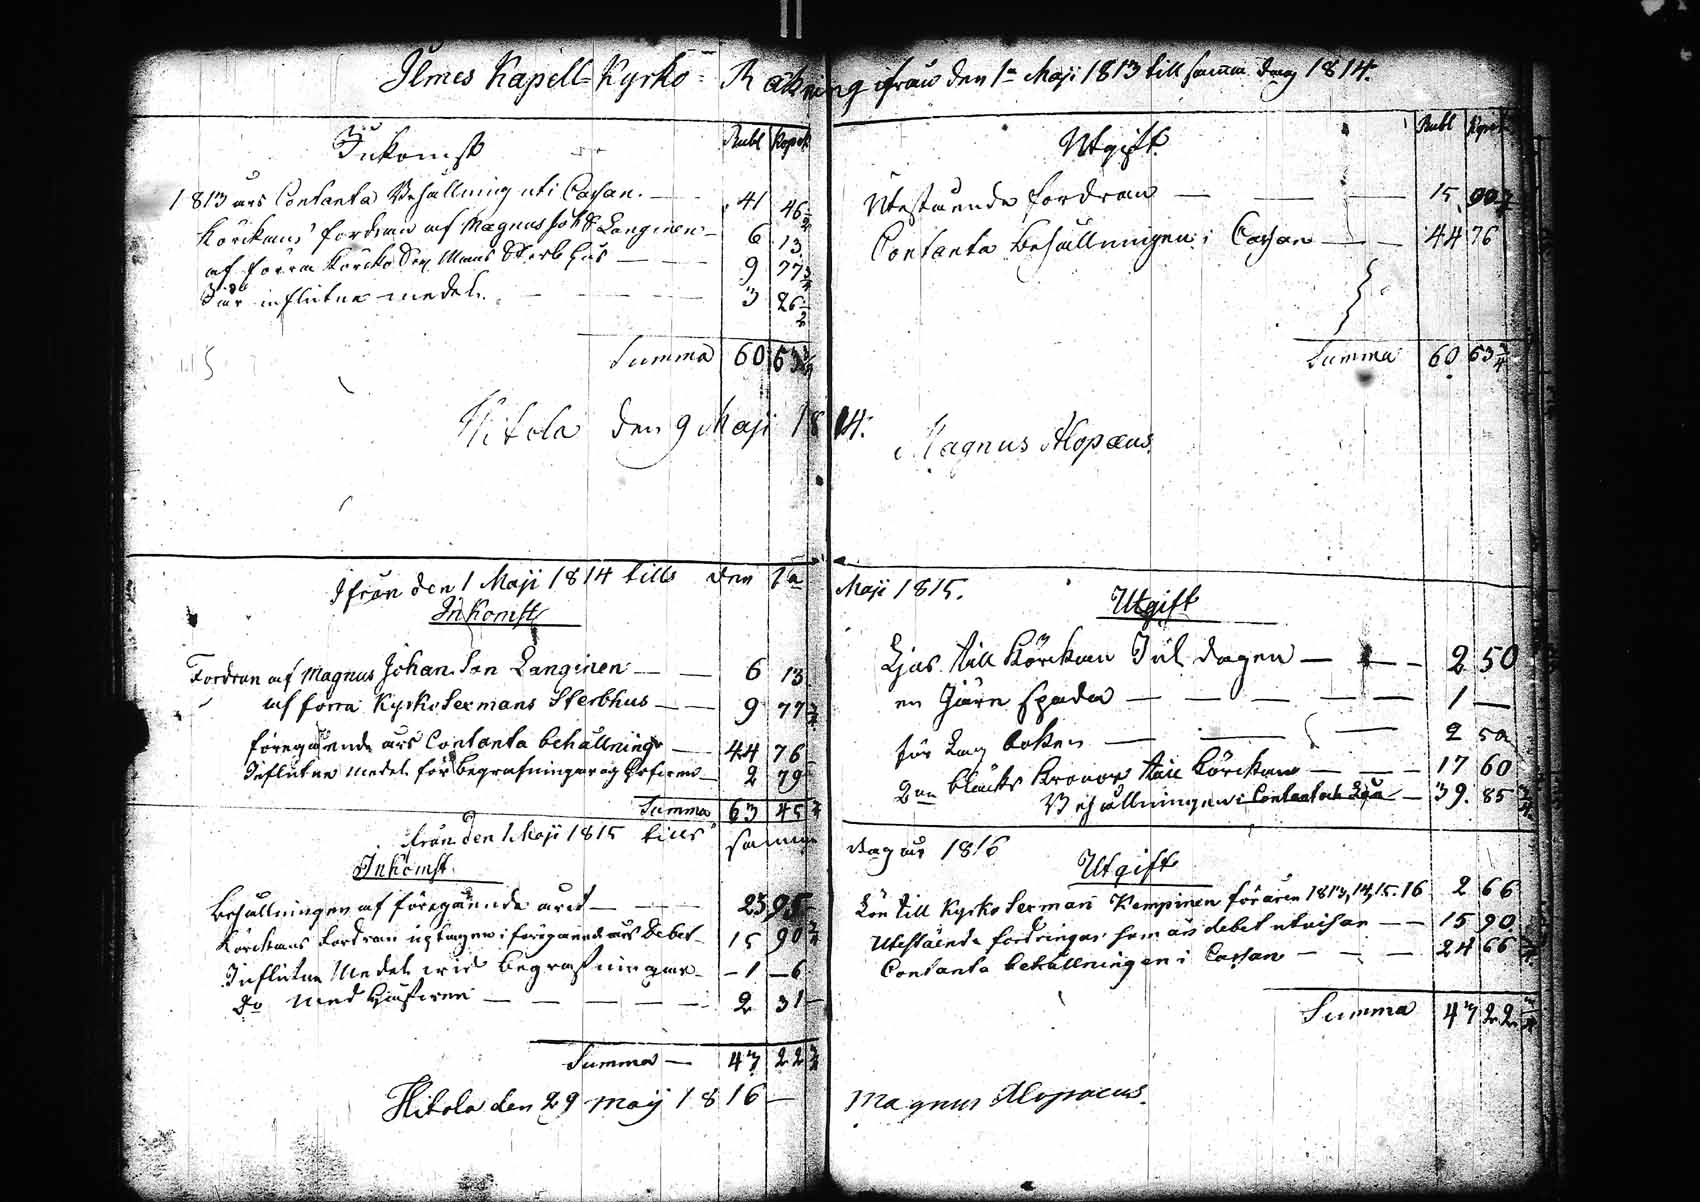 Ilmes Kapell-Kyrko-Räkning ifrån den 1a Maji 1813 till samma dag 1814.
Inkomst Rubl Kopek
1813 års Contanta Behållning uti Cassan. 41 46 1/2
Körckans fordran af Magnus Joh: Langinen 6 13
af förra Körcko Sexmans Sterbhus 9 77 3/4
I år influtne medel 3 26 1/2
Summa 60 63 3/4
Hitola den 9 Maji 1814.
Utgift Rubl Kopek
Utestående fordran 15 90 3/4
Contanta Behållningen i Cassan 44 76
Summa 60 63 3/4
Magnus Alopæus.
Ifrån den 1 Maji 1814 till den 1a Maji 1815.
Inkomst
Fordran af Magnus Johan Son Langinen 6 13
af förra Kyrko Sexmans Sterbhus 9 77 3/4
föregående års Contanta behållning 44 76
Influtne medel för begrafningar och 2 79
Summa 63 45 3/4
Utgift
Ljus till Körckan Jul dagen 2 50
en Järn spada 1 —
för Lag boken 2 50
2 bläcks Kronor till Körckan 17 60
Behållningen i Contant och Lån 39 85 3/4
från den 1 Maji 1815 till samma dag år 1816
Inkomst.
Behållningen af föregående året 23 95
Körckans fordran uptagen i föregående års debet 15 90 3/4
Influtne Medel wid begrafningar 1 6
Do med 2 31
Summa 47 22 3/4
Hitola den 29 Maij 1816
Utgift
Lön till Kyrko Sexman Kempinen för åren 1813, 14, 15. 16 2 66
Utestående fordringar som års debet utvisar 15 90
Contanta behållningen i Cassan 24 66
Summa 47 22 3/4
Magnus Alopaeus.